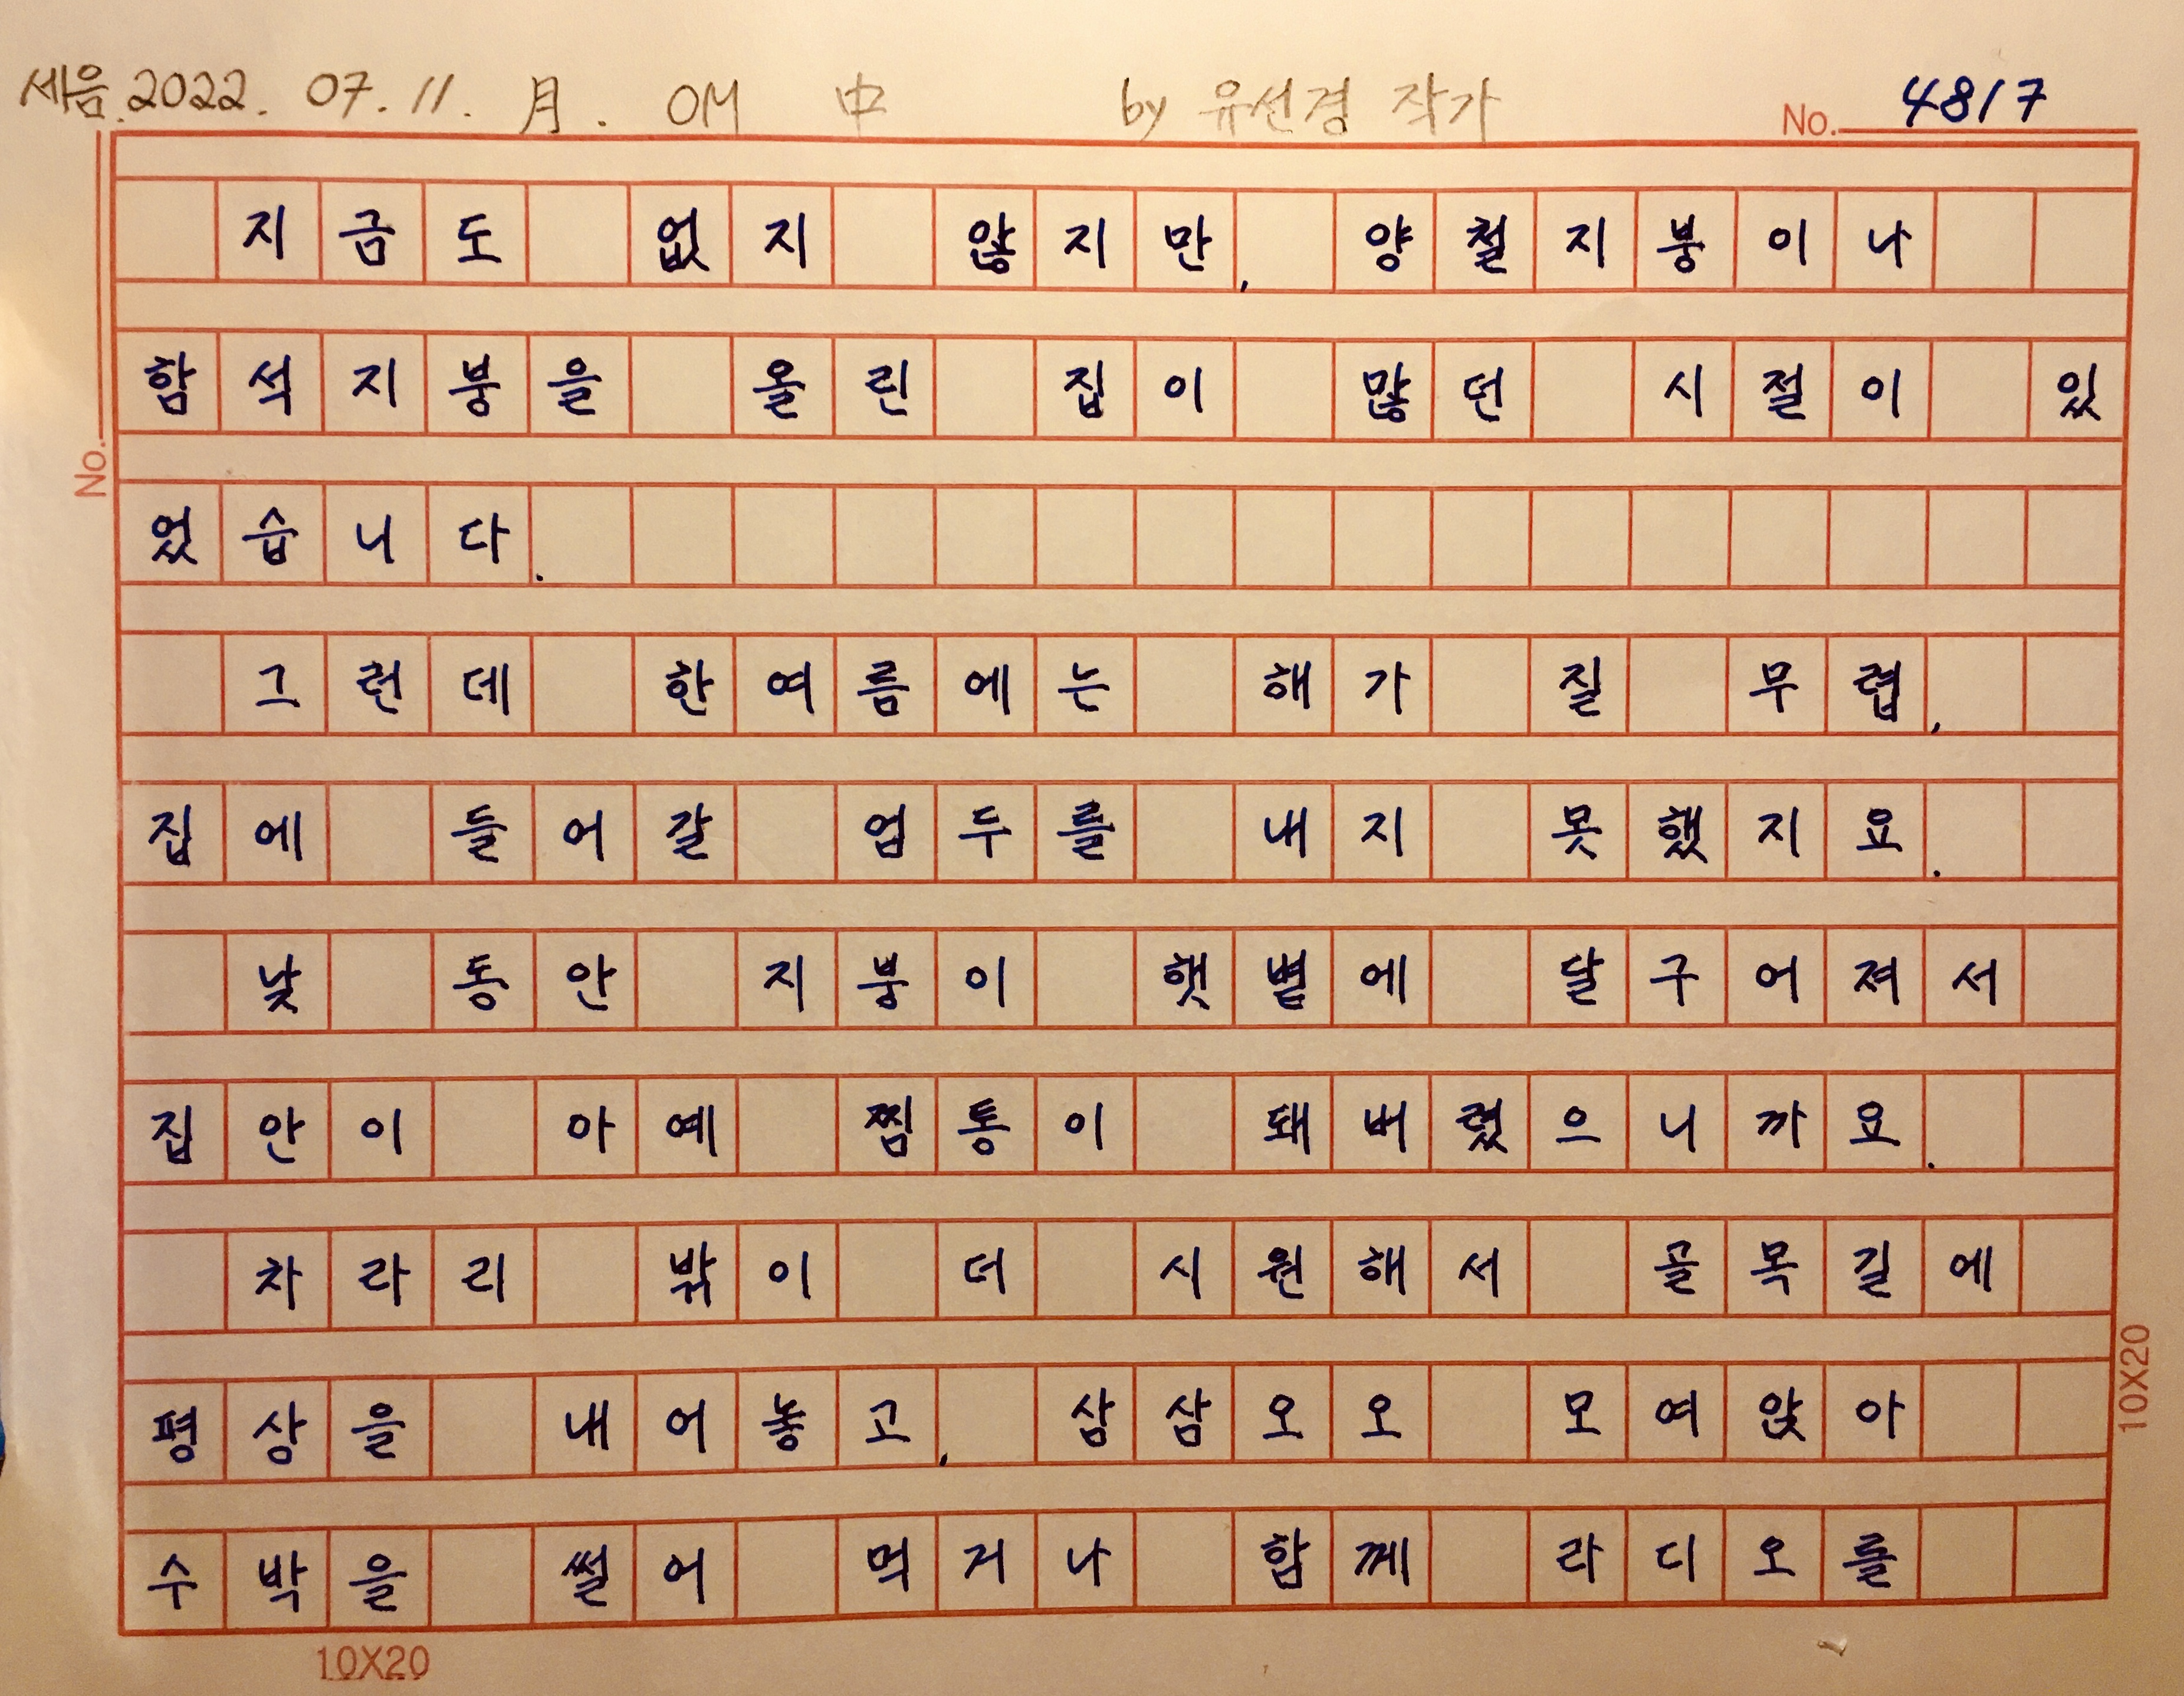 세음.2022. 07. 11. 月. OM 中 by 유선경 작가 No. 4817
지금도 없지 않지만, 양철지붕이나
함석지붕을 올린 집이 많던 시절이 있
No.
었습니다.
그런데 한여름에는 해가 질 무렵,
집에 들어갈 엄두를 내지 못했지요.
낮 동안 지붕이 햇볕에 달구어져서
집안이 아예 찜통이 돼버렸으니까요.
차라리 밖이 더 시원해서 골목길에
평상을 내어놓고, 삼삼오오 모여앉아
10X20
수박을 썰어 먹거나 함께 라디오를
10X20